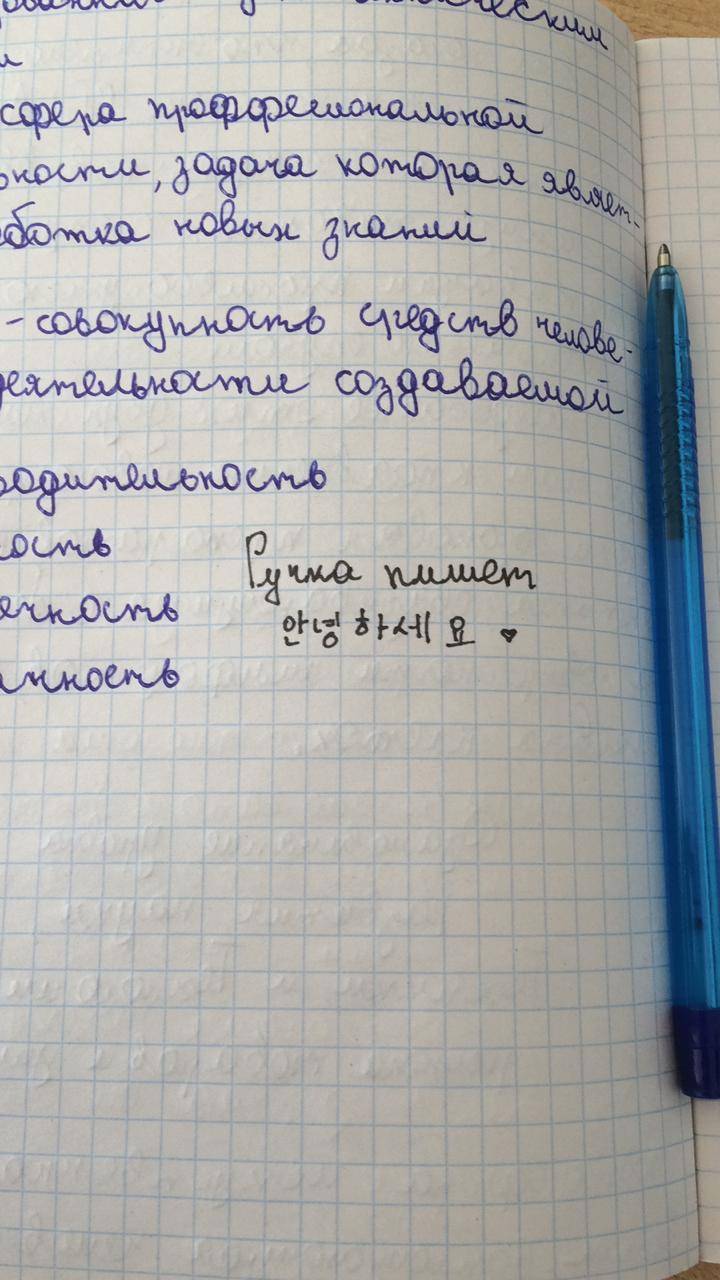 сфера проффесиональной
ьности, задача которая являет-
ботка новых знаний
-совокупность средств челове-
деятельности создаваемой
родительность
ность
ечность
нность
Ручка пишет
안녕하세요 ♥